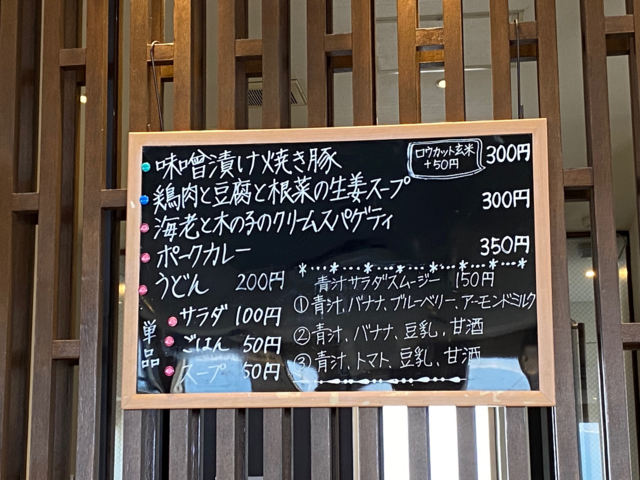 味噌漬け焼き豚 ロウカット玄米 +50円 300円
鶏肉と豆腐と根菜の生姜スープ 300円
海老と木の子のクリームスパゲティ
ポークカレー 350円
うどん 200円
単品
サラダ 100円
ごはん 50円
スープ 50円
青汁サラダスムージー 150円
①青汁、バナナ、ブルーベリー、アーモンドミルク
②青汁、バナナ、豆乳、甘酒
③青汁、トマト、豆乳、甘酒